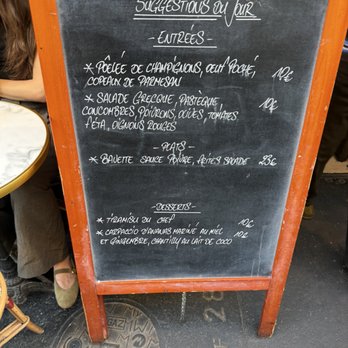 SUGGESTIONS DU JOUR
- ENTRÉES -
* POÊLÉE DE CHAMPIGNONS, OEUF POCHÉ, 10€
COPEAUX DE PARMESAN
* SALADE GRECQUE, PASTÈQUE, 10€
CONCOMBRES, POIVRONS, OLIVES, TOMATES
FÉTA, OIGNONS ROUGES
- PLATS -
* BAVETTE SAUCE POIVRE, FRITES SALADE 23€
- DESSERTS -
* TIRAMISU DU CHEF 10€
* CARPACCIO D'ANANAS MARINÉ AU MIEL 10€
ET GINGEMBRE, CHANTILLY AU LAIT DE COCO
GAZ
28